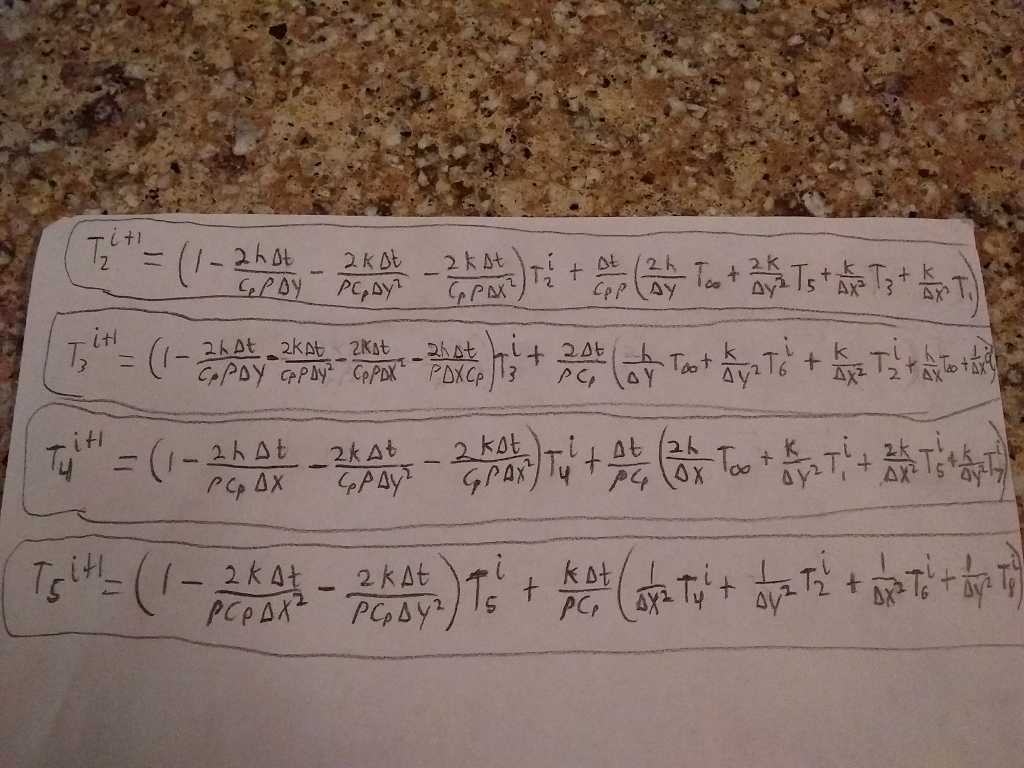 T₂^{i+1} = (1 - 2hΔt/(CₚρΔy) - 2kΔt/(ρCₚΔy²) - 2kΔt/(CₚρΔx²)) T₂^i + Δt/(Cₚρ) (2h/Δy T∞ + 2k/Δy² T₅ + k/Δx² T₃ + k/Δx² T₁)
T₃^{i+1} = (1 - 2hΔt/(CₚρΔy) - 2kΔt/(CₚρΔy²) - 2kΔt/(CₚρΔx²) - 2hΔt/(ρΔxCₚ)) T₃^i + 2Δt/(ρCₚ) (h/Δy T∞ + k/Δy² T₆^i + k/Δx² T₂^i + h/Δx T∞ +
T₄^{i+1} = (1 - 2hΔt/(ρCₚΔx) - 2kΔt/(CₚρΔy²) - 2kΔt/(CₚρΔx²)) T₄^i + Δt/(ρCₚ) (2h/Δx T∞ + k/Δy² T₁^i + 2k/Δx² T₅^i + k/Δy² T₇^i)
T₅^{i+1} = (1 - 2kΔt/(ρCₚΔx²) - 2kΔt/(ρCₚΔy²)) T₅^i + kΔt/(ρCₚ) (1/Δx² T₄^i + 1/Δy² T₂^i + 1/Δx² T₆^i + 1/Δy² T₈^i)